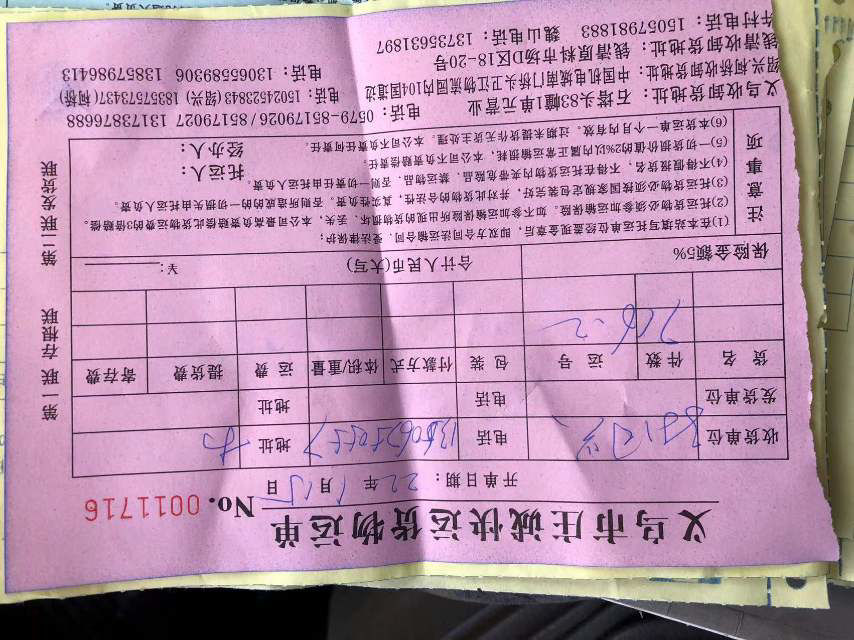 义乌市庄诚快运货物运单
开单日期：22年1月15日 No. 0011716
收货单位 电话 地址
发货单位 电话 地址
货名 件数 运号 包装 付款方式 体积/重量 运费 提货费 寄存费
716-2
保险金额5% 合计人民币(大写) ¥：
注意事项
(1)在本站填写托运单位经盖现金章后，即双方合同法运输合同，受法律保护；
(2)托运货物必须参加运输保险。如不参加运输保险所出现的货物损坏、丢失，本公司最高负责赔偿此货物运费的3倍赔偿。
(3)托运货物必须按国家规定包装完好，并对此货物的合法性，真实性负责。否则所造成的的一切损失由托运人负责。
(4)不得假报货名，不得在托运货物内夹带危险品、禁运物品，否则一切责任由托运人负责。
(5)一切货损价值的2%以内属正常运输损耗，本公司不负责赔偿责任。
(6)本货运单一个月内有效，过期未提货作无货主处理。本公司不负责任何责任。
托运人：
经办人：
义乌收卸货地址：石塔头83幢1单元营业 电话：0579-85179026/85179027 13173876688
绍兴柯桥收卸货地址：中国轻纺城南门桥头卫江物流园内104国道边 电话：15024523843(绍兴) 18357573437(柯桥)
钱清收卸货地址：钱清原料市场D区18-20号 电话：13065589306 13857986413
许村电话：15057981883 魏山电话：13735631897
第一联 存根联 第二联 发货联